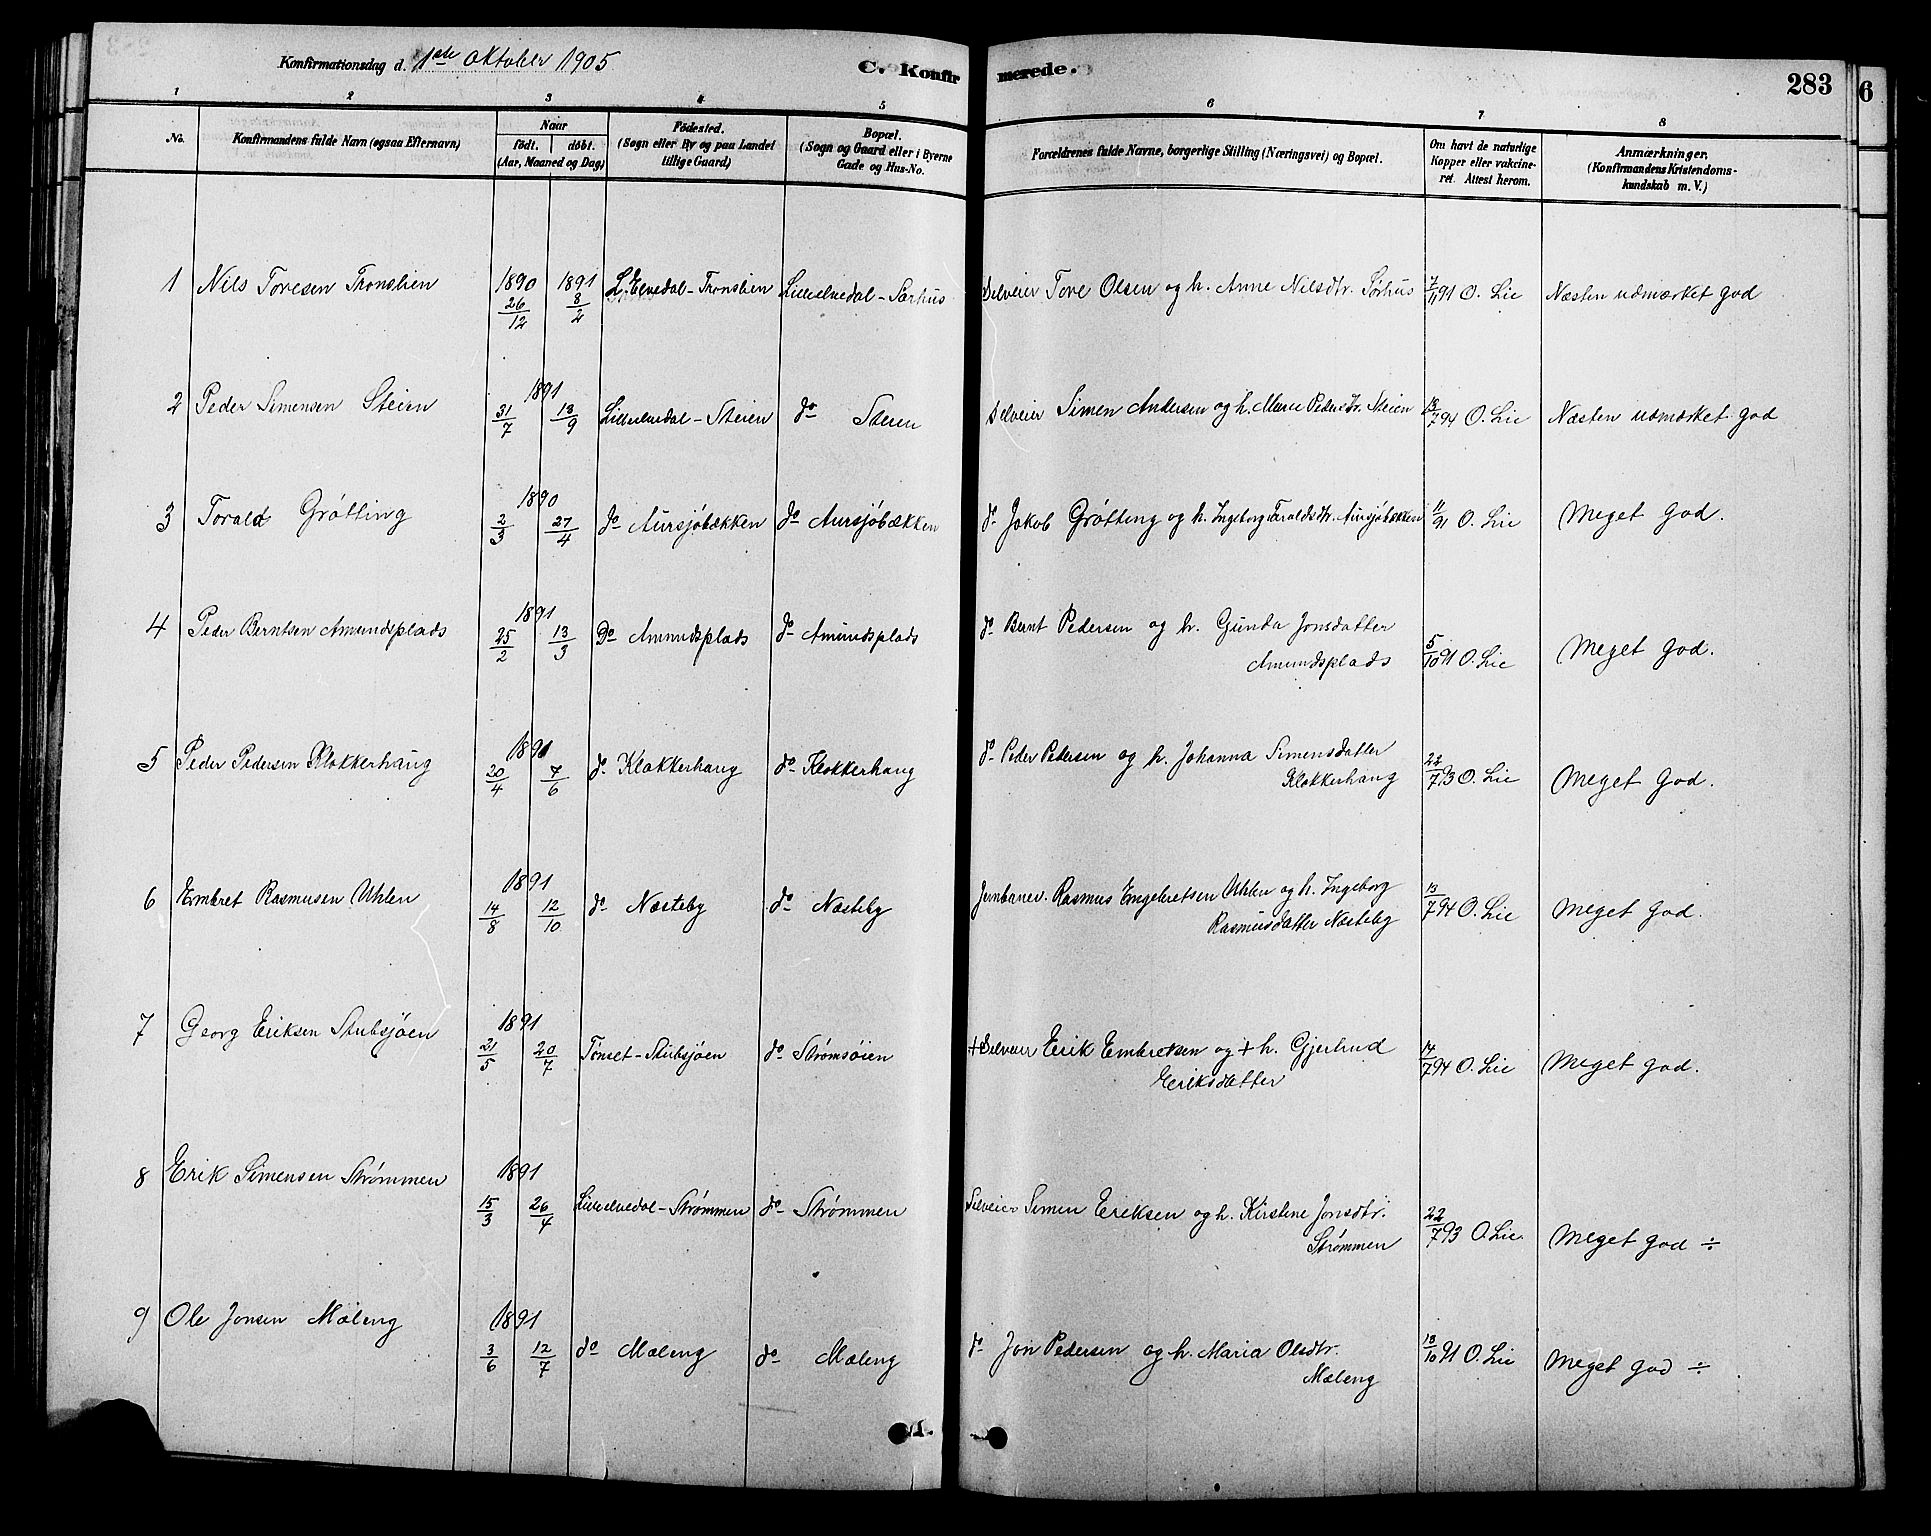 Konfirmationsdag d. 1ste Oktober 1905
C. Konfirmerede.
283
6
1 2 3 4 5 6 7 8
No.
Konfirmandens fulde Navn (ogsaa Efternavn)
Naar
födt. döbt.
(Aar, Maaned og Dag)
Födested.
(Sogn eller By og paa Landet
tillige Gaard)
Bopæl.
(Sogn og Gaard eller i Byerne
Gade og Hus-No.
Forældrenes fulde Navne, borgerlige Stilling (Næringsvei) og Bopæl.
Om havt de naturlige
Kopper eller vakcine-
ret. Attest herom.
Anmærkninger,
(Konfirmandens Kristendoms-
kundskab m. V.)
1 Nils Toresen Tronslien 1890 26/12 1891 8/2 L. Elvedal-Tronslien Lilleelvedal-Sørhus Selveier Tore Olsen og h. Anne Nilsdtr. Sørhus 7/11 91 O. Lie Næsten udmærket god
2 Peder Simensen Steien 1891 31/7 13/9 Lilleelvedal-Steien do Steien Selveier Simen Andersen og h. Marie Pedersdtr. Steien 13/7 94 O. Lie Næsten udmærket god
3 Torald Grøtting 1890 2/3 27/4 do Aursjøbækken do Aursjøbækken do Jakob Grøtting og h. Ingeborg Taraldsdtr. Aursjøbækken 11/91 O. Lie Meget god.
4 Peder Berntsen Amundsplads 1891 25/2 13/3 Do Amundsplads do Amundsplads do Bernt Pedersen og h. Gunda Jonsdatter
Amundsplads 5/10 91 O. Lie Meget god.
5 Peder Pedersen Klokkerhaug 1891 20/4 7/6 do Klokkerhaug do Klokkerhaug do Peder Pedersen og h. Johanna Simensdatter
Klokkerhaug 22/7 93 O. Lie Meget god.
6 Embret Rasmusen Uhlen 1891 14/8 12/10 do Næsteby do Næsteby Jernbanev. Rasmus Engebretsen Uhlen og h. Ingeborg
Rasmusdatter Næsteby 13/7 94 O. Lie Meget god.
7 Georg Eriksen Stubsjøen 1891 21/5 20/7 Tønset-Stubsjøen do Strømsøien + Selveier Erik Embretsen og + h. Gjertrud
Eriksdatter 14/7 94 O. Lie Meget god.
8 Erik Simensen Strømmen 1891 15/3 26/4 Lilleelvedal-Strømmen do Strømmen Selveier Simen Eriksen og h. Kirstine Jonsdtr.
Strømmen 22/7 93 O. Lie Meget god ÷
9 Ole Jonsen Mæleng 1891 3/6 12/7 do Mæleng do Mæleng do Jon Pedersen og h. Maria Olsdtr.
Mæleng 13/10 91 O. Lie Meget god ÷